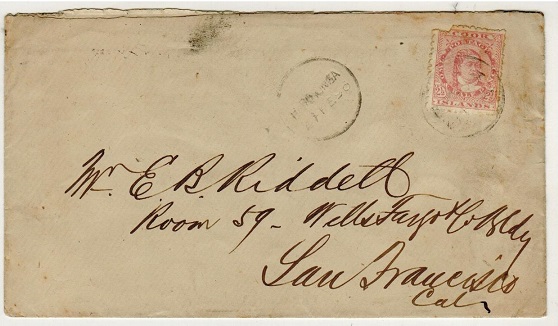 COOK
POSTAGE
ISLANDS
Mr. E. B. Riddell
Room 59 - Wells Fargo & Co Bldg
San Francisco
Cal